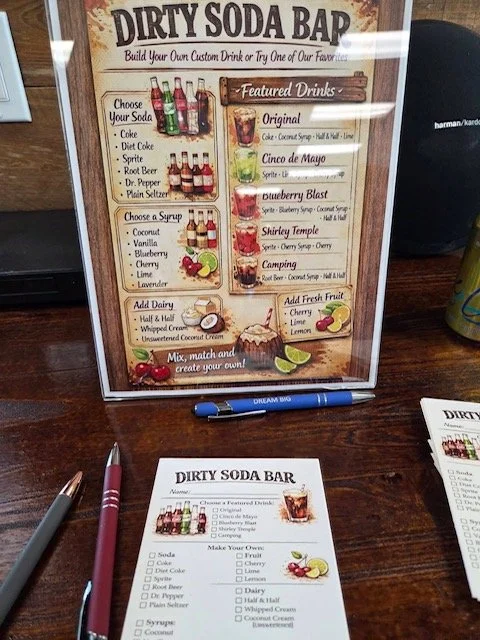 DIRTY SODA BAR
Build Your Own Custom Drink or Try One of Our Favorites
Choose
Your Soda
• Coke
• Diet Coke
• Sprite
• Root Beer
• Dr. Pepper
• Plain Seltzer
Choose a Syrup
• Coconut
• Vanilla
• Blueberry
• Cherry
• Lime
• Lavender
Add Dairy
• Half & Half
• Whipped Cream
• Unsweetened Coconut Cream
Featured Drinks
Original
Coke • Coconut Syrup • Half & Half • Lime
Cinco de Mayo
Sprite •
Blueberry Blast
Sprite • Blueberry Syrup • Coconut Syrup •
Half & Half
Shirley Temple
Sprite • Cherry Syrup • Cherry
Camping
Root Beer • Coconut Syrup • Half & Half
Add Fresh Fruit
• Cherry
• Lime
• Lemon
Mix, match and
create your own!
harman/kardo
DREAM BIG
DIRTY SODA BAR
Name:
Choose a Featured Drink:
Original
Cinco de Mayo
Blueberry Blast
Shirley Temple
Camping
Make Your Own:
Soda
Coke
Diet Coke
Sprite
Root Beer
Dr. Pepper
Plain Seltzer
Syrups:
Coconut
Fruit
Cherry
Lime
Lemon
Dairy
Half & Half
Whipped Cream
Coconut Cream
(Unsweetened)
DIRTY
Name:
Soda
Coke
Diet Co
Sprite
Root B
Dr. Pe
Plain
Syru
Coco